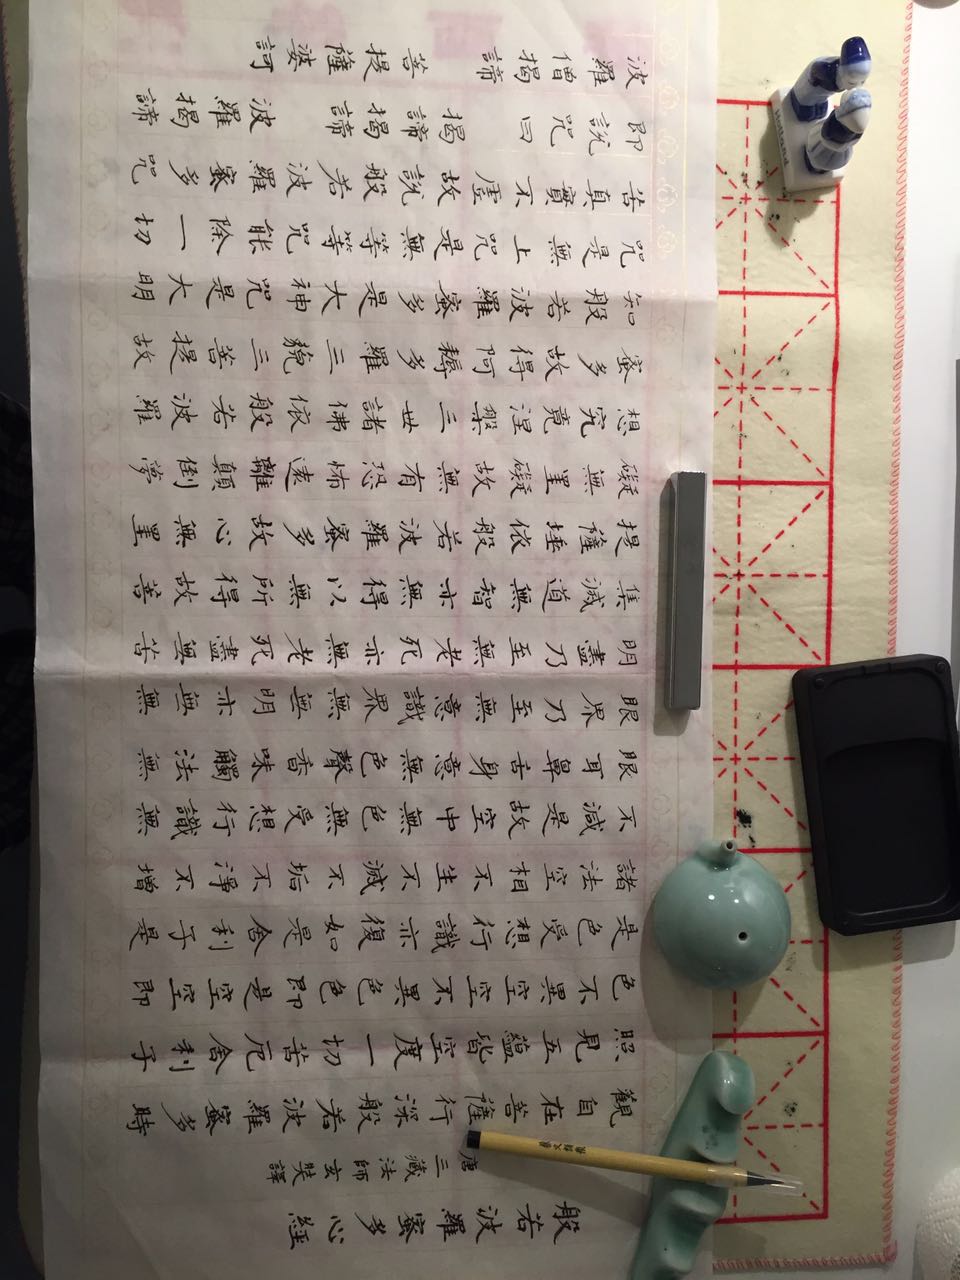 般若波羅蜜多心經
唐三藏法師玄奘譯
觀自在菩薩行深般若波羅蜜多時
照見五蘊皆空度一切苦厄舍利子
色不異空空不異色色即是空空即
是色受想行識亦復如是舍利子是
諸法空相不生不滅不垢不淨不增
不減是故空中無色無受想行識無
眼耳鼻舌身意無色聲香味觸法無
眼界乃至無意識界無無明亦無無
明盡乃至無老死亦無老死盡無苦
集滅道無智亦無得以無所得故菩
提薩埵依般若波羅蜜多故心無罣
礙無罣礙故無有恐怖遠離顛倒夢
想究竟涅槃三世諸佛依般若波羅
蜜多故得阿耨多羅三藐三菩提故
知般若波羅蜜多是大神咒是大明
咒是無上咒是無等等咒能除一切
苦真實不虛故說般若波羅蜜多咒
即說咒曰 揭諦 揭諦 波羅揭諦
波羅僧揭諦 菩提薩婆訶
Holland